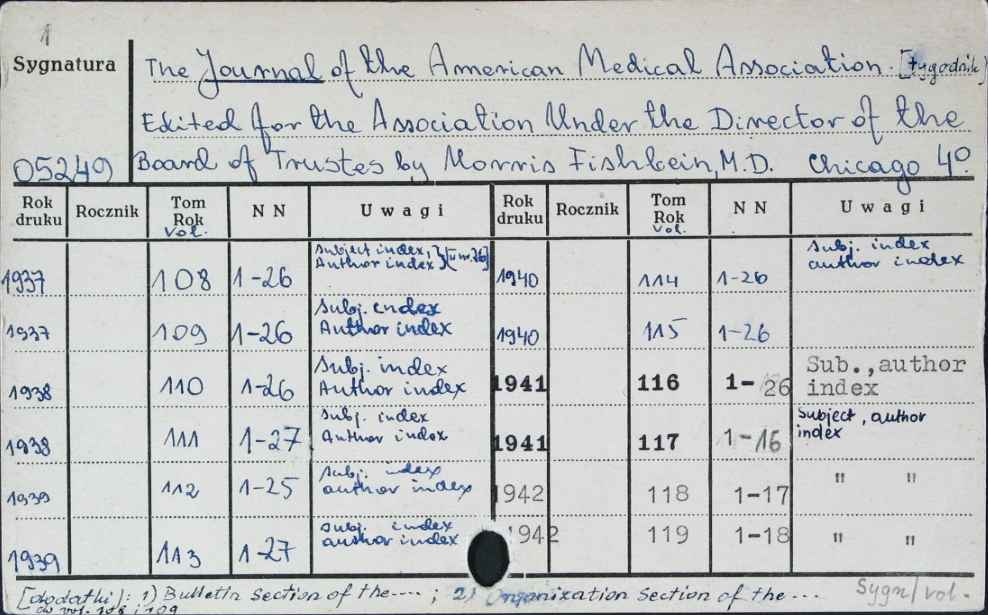 1
Sygnatura
The Journal of the American Medical Association. [tygodnik]
Edited for the Association Under the Director of the
05249 Board of Trustes by Morris Fishbein, M.D. Chicago 4°.
Rok druku Rocznik Tom Rok Vol. NN Uwagi Rok druku Rocznik Tom Rok Vol. NN Uwagi
1937 108 1-26 Subject index, Author index }[w nr. 26] 1940 114 1-26 Subj. index author index
1937 109 1-26 Subj. index Author index 1940 115 1-26
1938 110 1-26 Subj. index Author index 1941 116 1-26 Sub., author index
1938 111 1-27 Subj. index Author index 1941 117 1-16 Subject, author index
1939 112 1-25 Subj. index author index 1942 118 1-17 " "
1939 113 1-27 Subj. index author index 1942 119 1-18 " "
[dodatki]: 1) Bulletin Section of the----; 2) Organization Section of the ... Sygn/vol.
do vol. 108 i 109